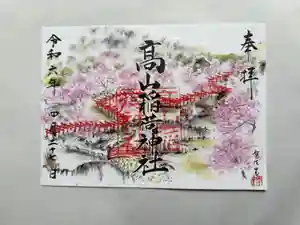 奉拝
高山稲荷神社
令和六年 四月二十七日